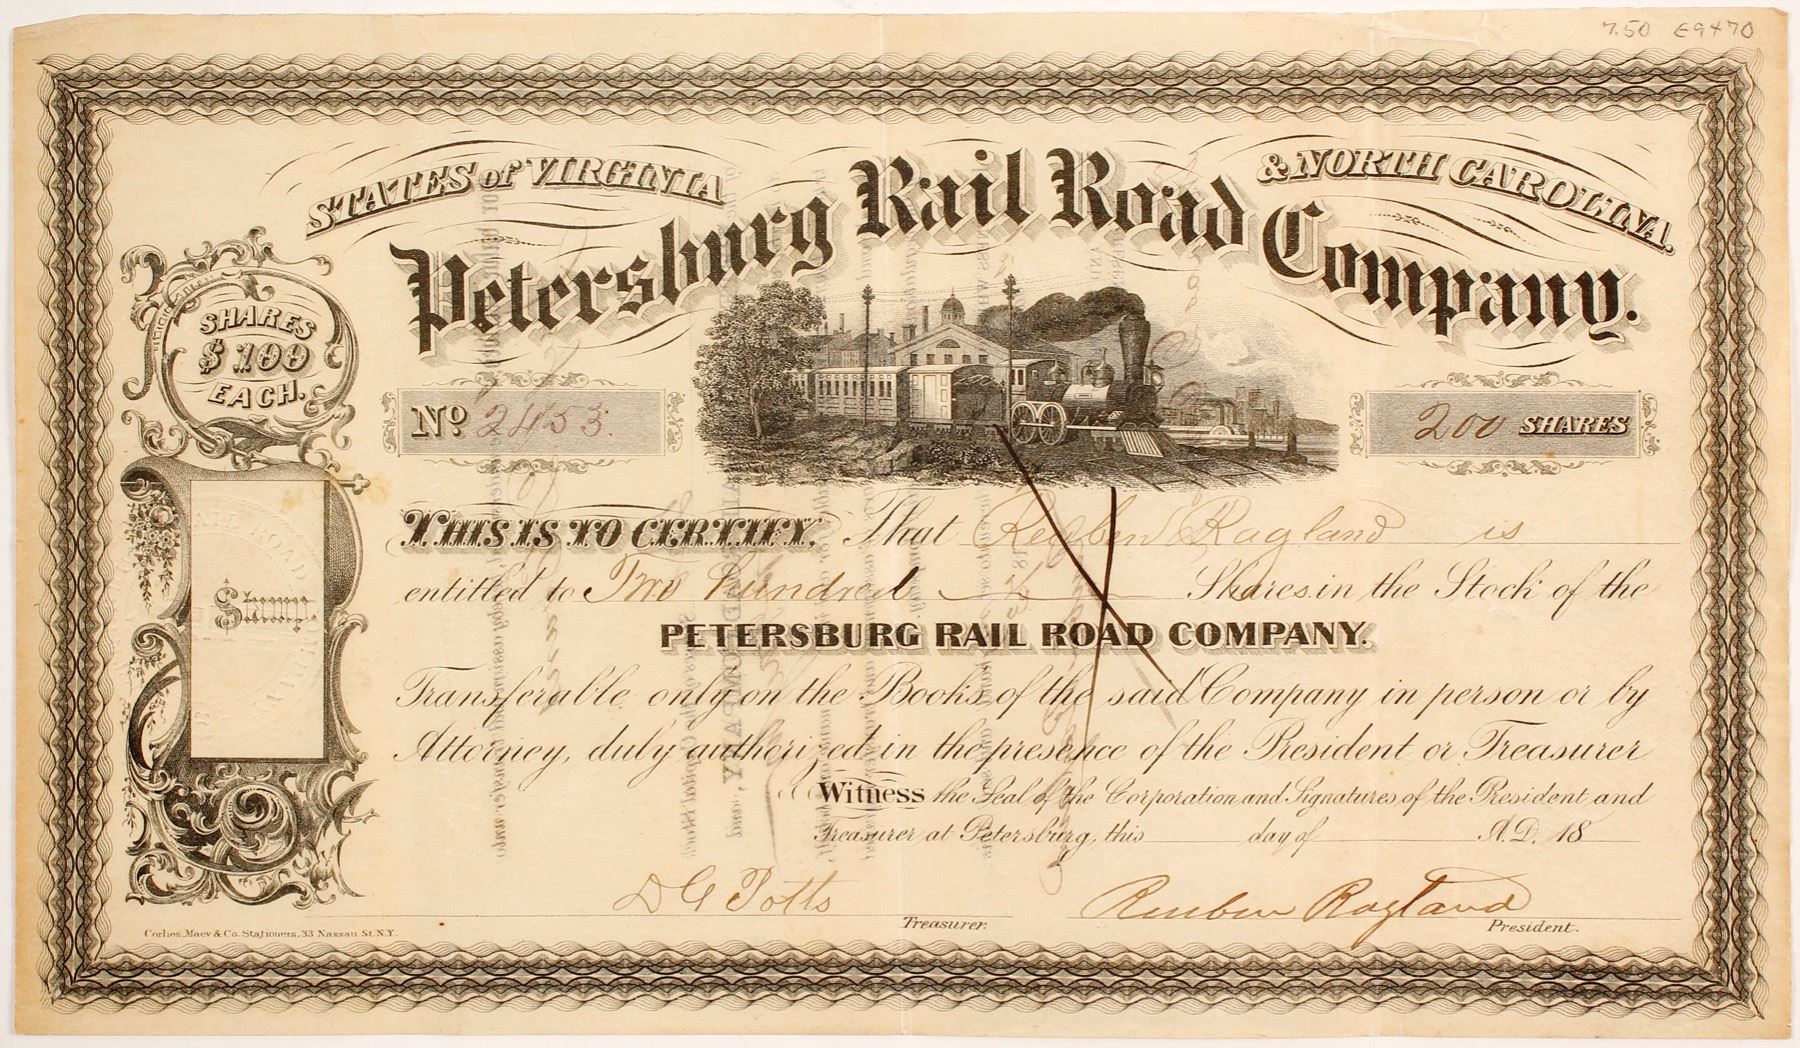 7.50 E9470
STATES of VIRGINIA & NORTH CAROLINA.
Petersburg Rail Road Company.
SHARES
$100
EACH.
No 2453.
200 SHARES
THIS IS TO CERTIFY, That Reuben Ragland is
entitled to Two hundred Shares in the Stock of the
PETERSBURG RAIL ROAD COMPANY.
Transferable only on the Books of the said Company in person or by
Attorney, duly authorized in the presence of the President or Treasurer
Witness the Seal of the Corporation and Signatures of the President and
Treasurer at Petersburg, this day of A.D. 18
Stamp.
D G Potts
Treasurer.
Reuben Ragland
President.
Corlies, Macy & Co. Stationers, 33 Nassau St. N.Y.